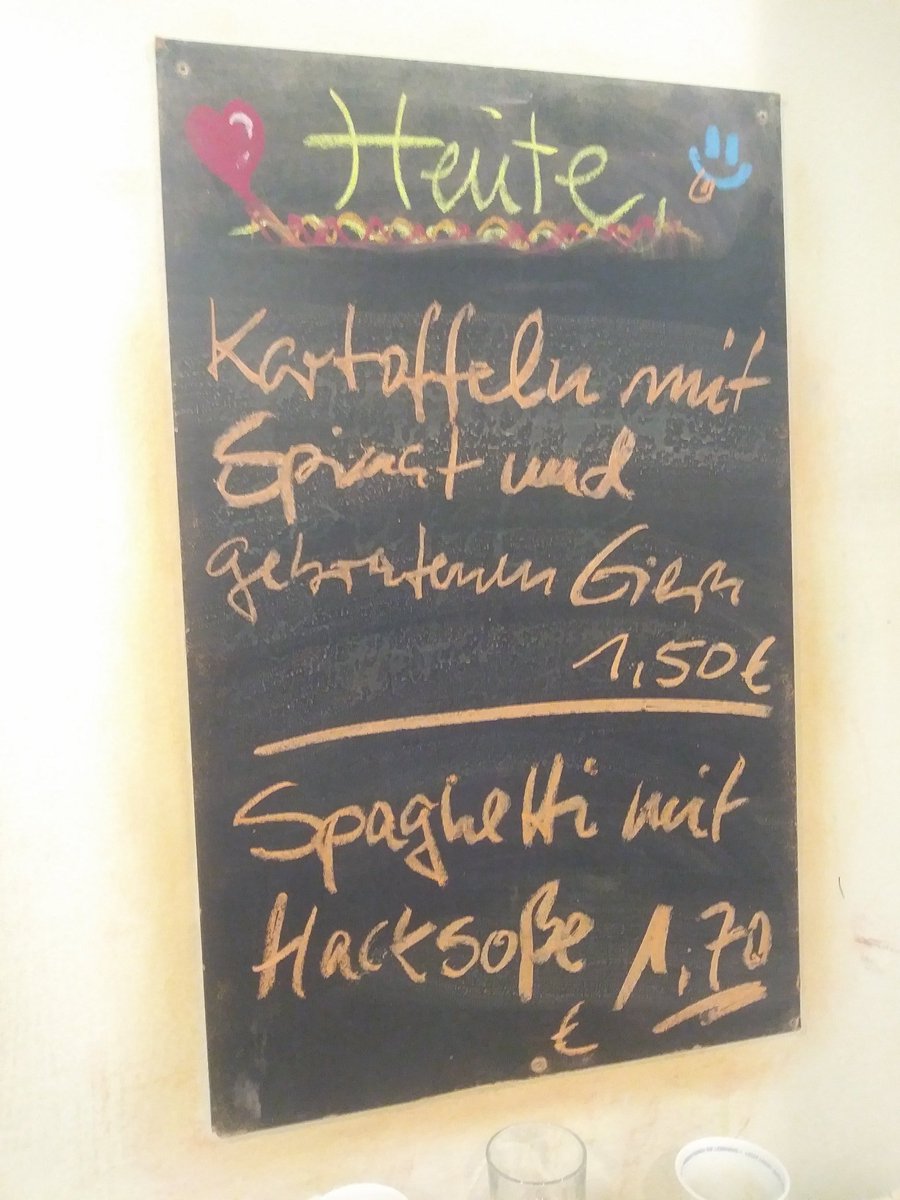 Heute,
Kartoffeln mit
Spinat und
gebratenen Eiern
1,50€
Spaghetti mit
Hacksoße 1,70
€